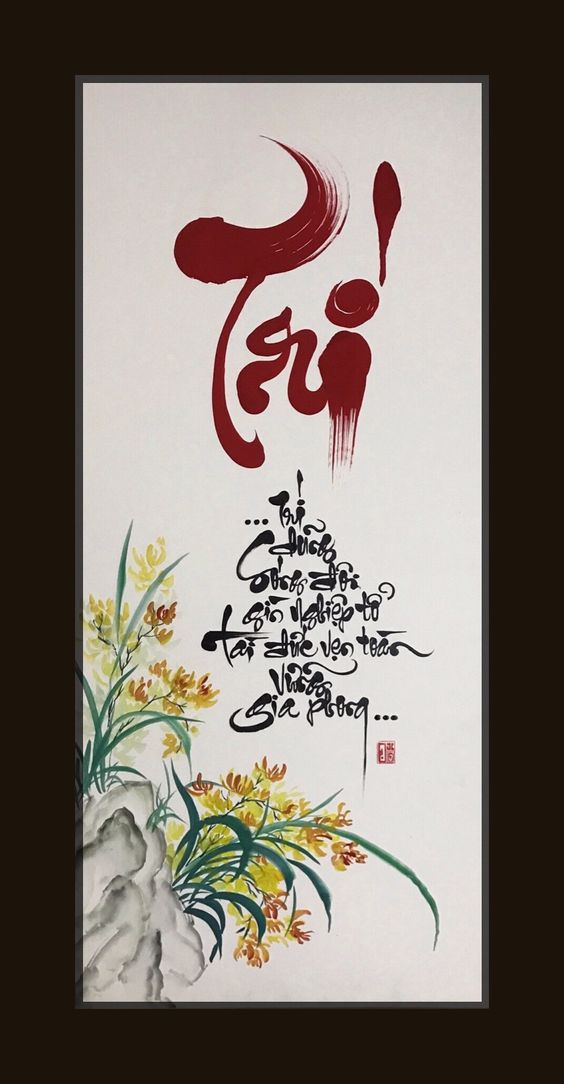 Trí
... Trí
dũng
Sóng đôi
gìn nghiệp tổ
tài đức vẹn toàn
vững
gia phong ...